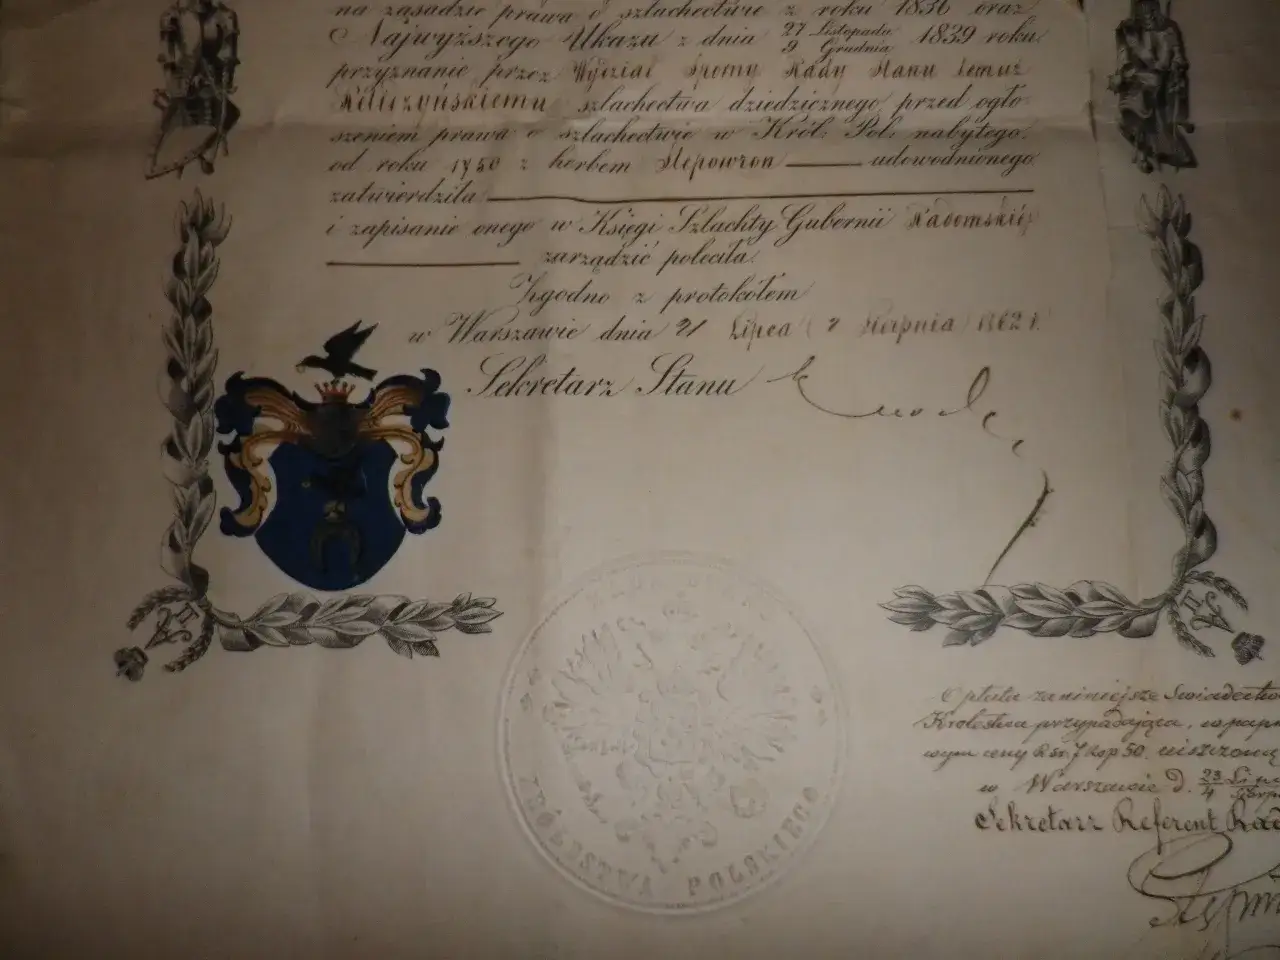 na zasadzie prawa o szlachectwie z roku 1836 oraz
Najwyższego Ukazu z dnia 27 Listopada / 9 Grudnia 1839 roku
przyznanie przez Wydział Sporny Rady Stanu temuż
szlachectwa dziedzicznego, przed ogło-
szeniem prawa o szlachectwie w Król: Pol: nabytego.
od roku 1780 z herbem Slepowron udowodnionego
zatwierdziła
i zapisanie onego w Księgi Szlachty Gubernii Radomskiéj
zarządzić poleciła.
Zgodno z protokółem
w Warszawie dnia 21 Lipca (2 Sierpnia) 1862 r.
Sekretarz Stanu
KRÓLESTWA POLSKIEGO
Opłata za niniejsze Swiadectwo
Królestwa przypadająca, w papie
wym ceny R sr. 7 kop 50. uiszczoną
w Warszawie D. 23 Lip / 4 Sierp
Sekretarz Referent Rad